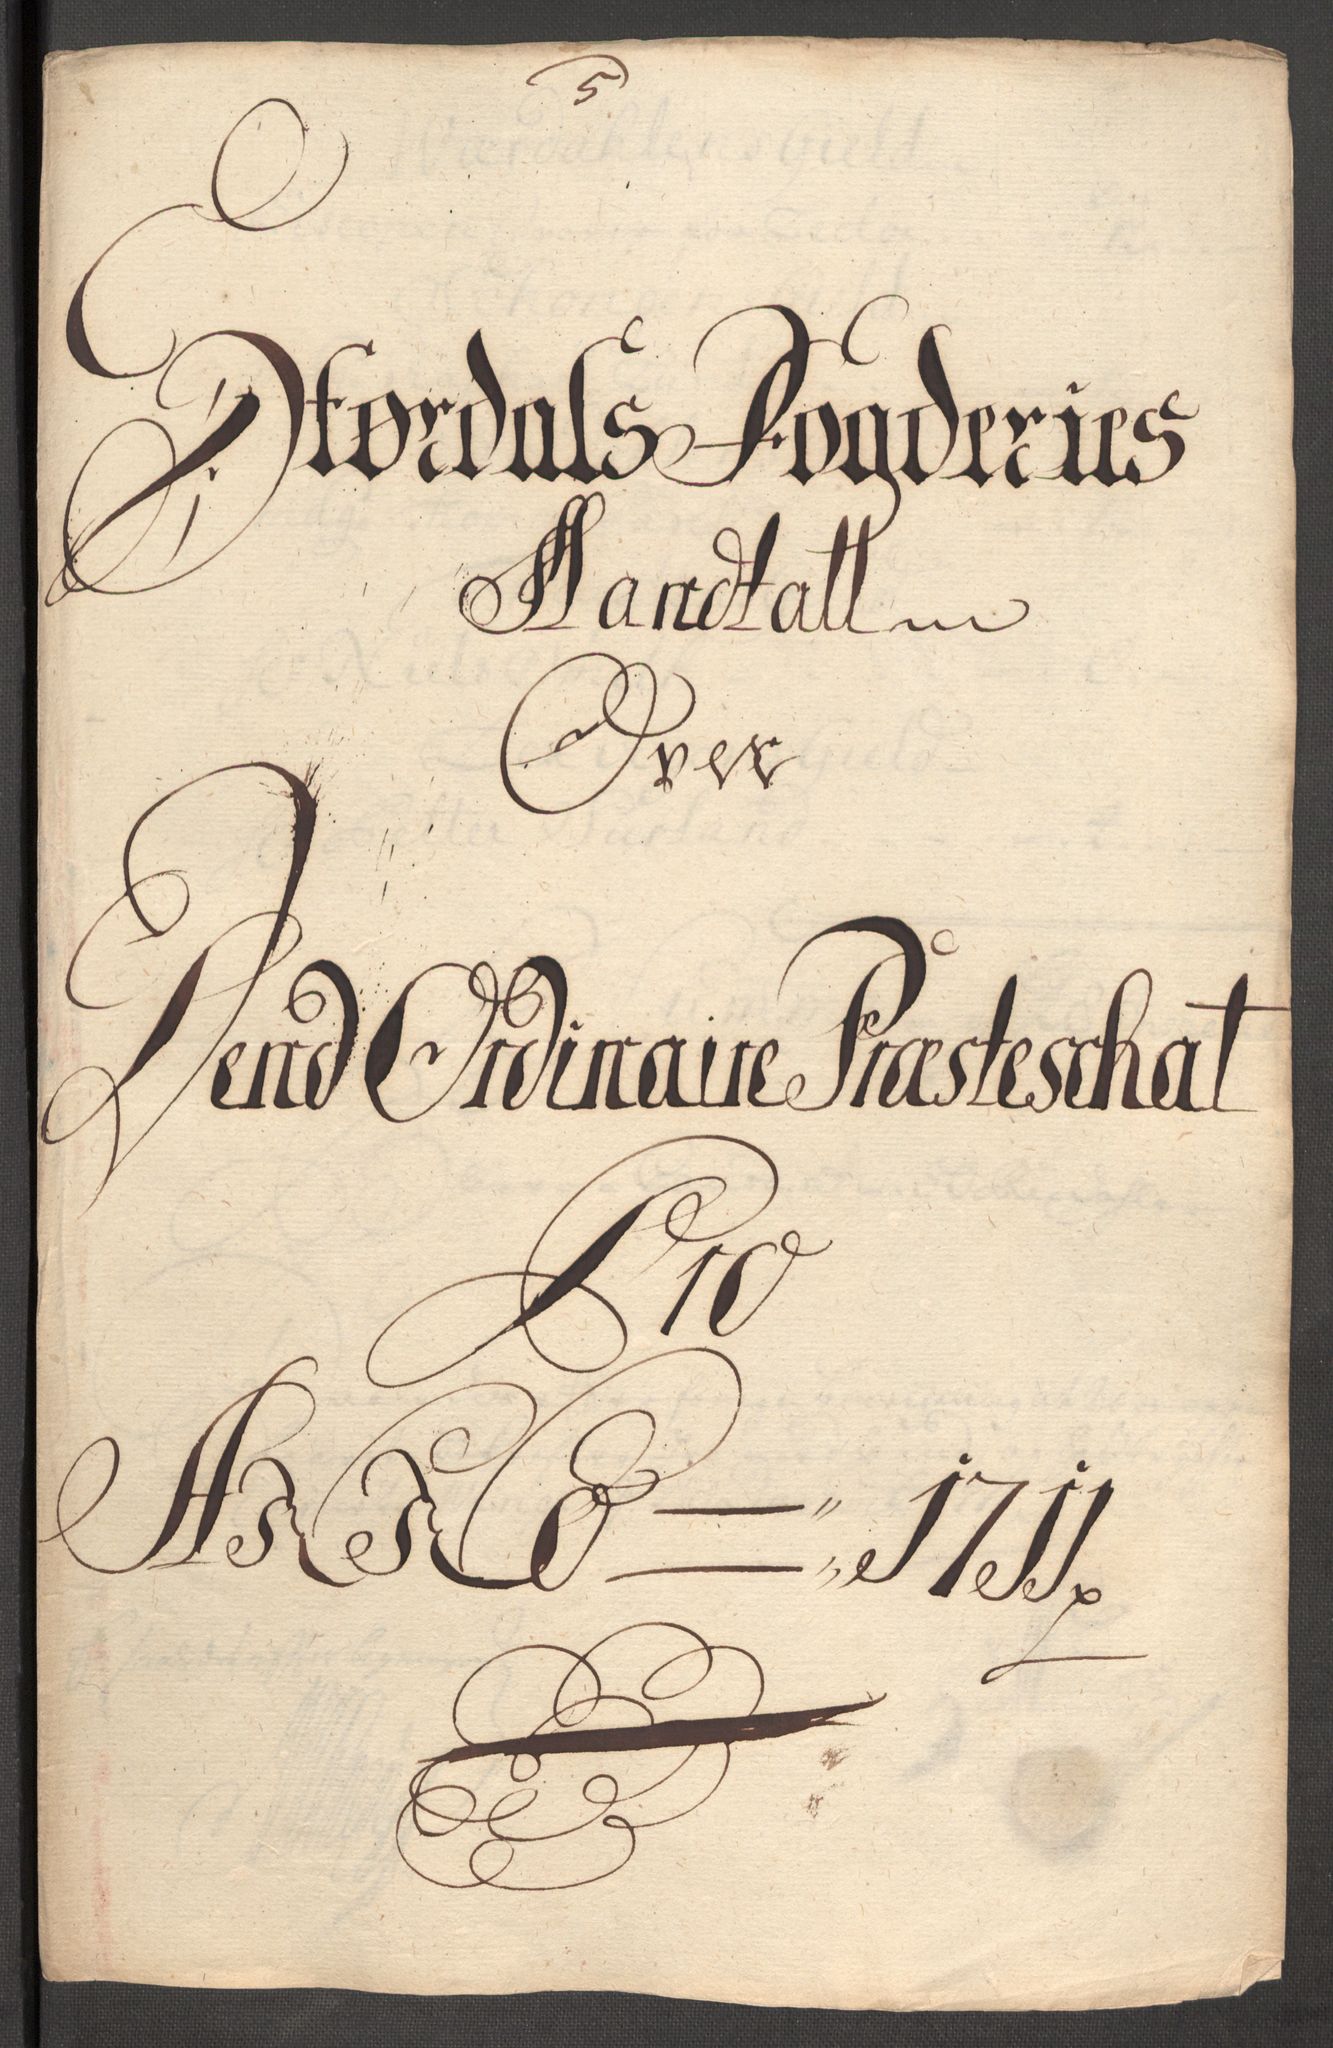 5
Størdals Fogderies
Mandtall
Over
Dend Ordinaire Præsteschat
Pro
ANNO 1711